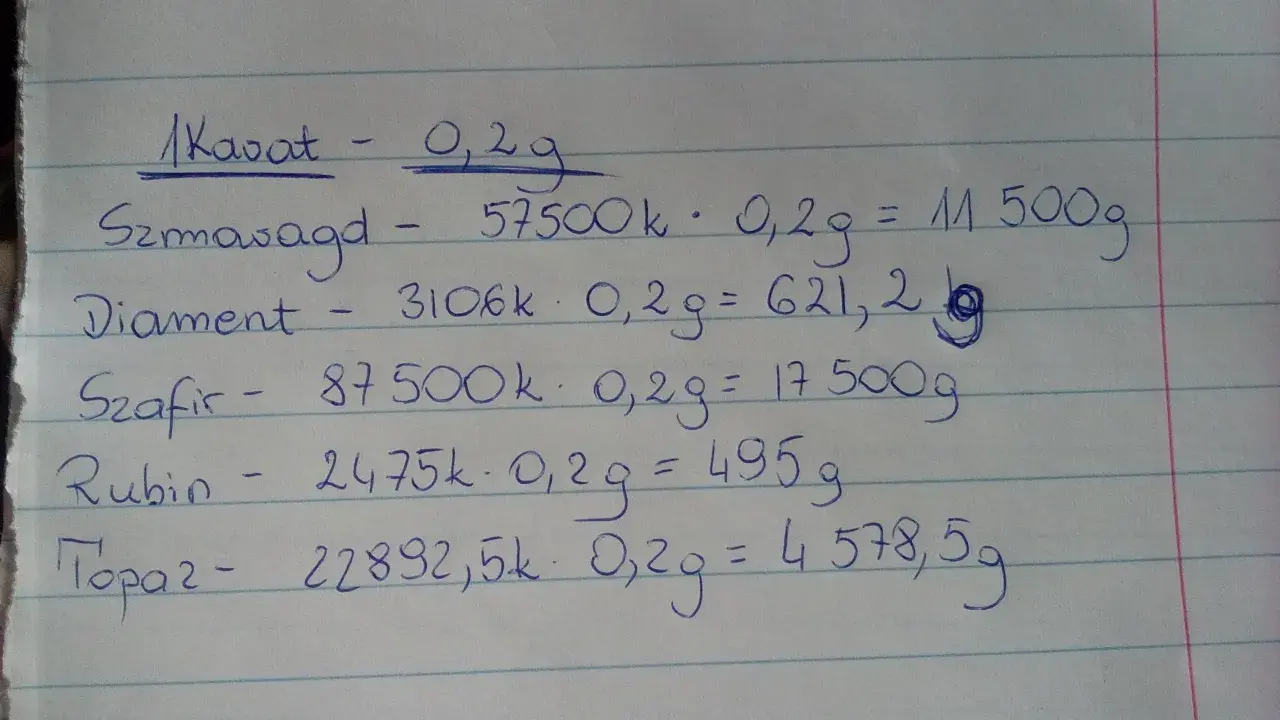 1Karat - 0,2g
Szmaragd - 57500k · 0,2g = 11 500g
Diament - 3106k · 0,2g = 621,2 g
Szafir - 87 500k · 0,2g = 17 500g
Rubin - 2475k · 0,2g = 495g
Topaz - 22892,5k · 0,2g = 4 578,5g